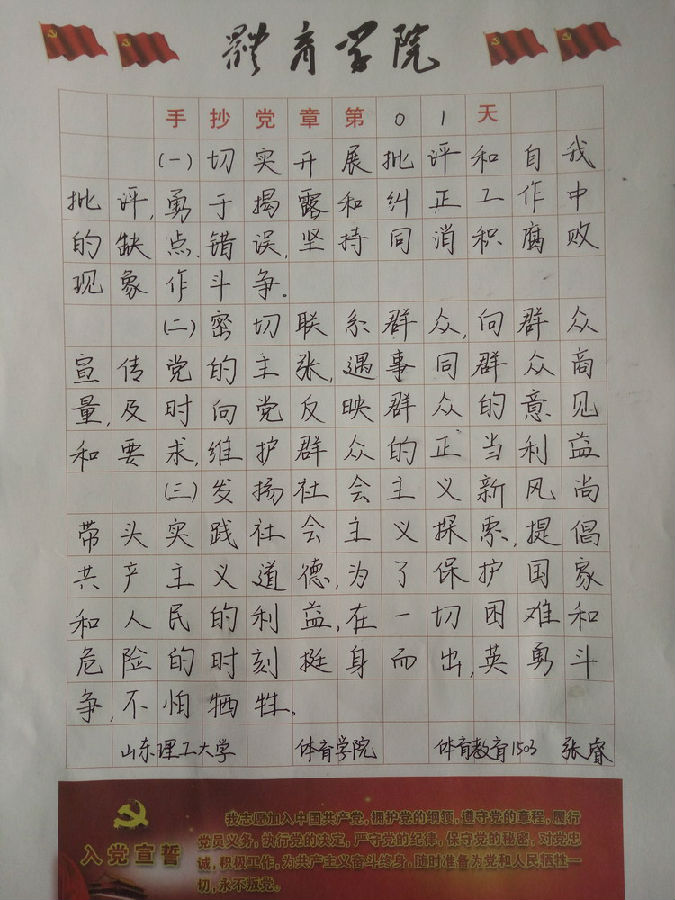 體育学院
手抄党章第01天
(一)切实开展批评和自我
批评,勇于揭露和纠正工作中
的缺点、错误,坚持同消积腐败
现象作斗争.
(二)密切联系群众,向群众
宣传党的主张,遇事同群众商
量,及时向党反映群众的意见
和要求,维护群众的正当利益
(三)发扬社会主义新风尚
带头实践社会主义探索,提倡
共产主义道德,为了保护国家
和人民的利益,在一切困难和
危险的时刻挺身而出,英勇斗
争,不怕牺牲.
山东理工大学 体育学院 体育教育1503 张睿
入党宣誓
我志愿加入中国共产党，拥护党的纲领，遵守党的章程，履行
党员义务，执行党的决定，严守党的纪律，保守党的秘密，对党忠
诚，积极工作，为共产主义奋斗终身，随时准备为党和人民牺牲一
切，永不叛党。